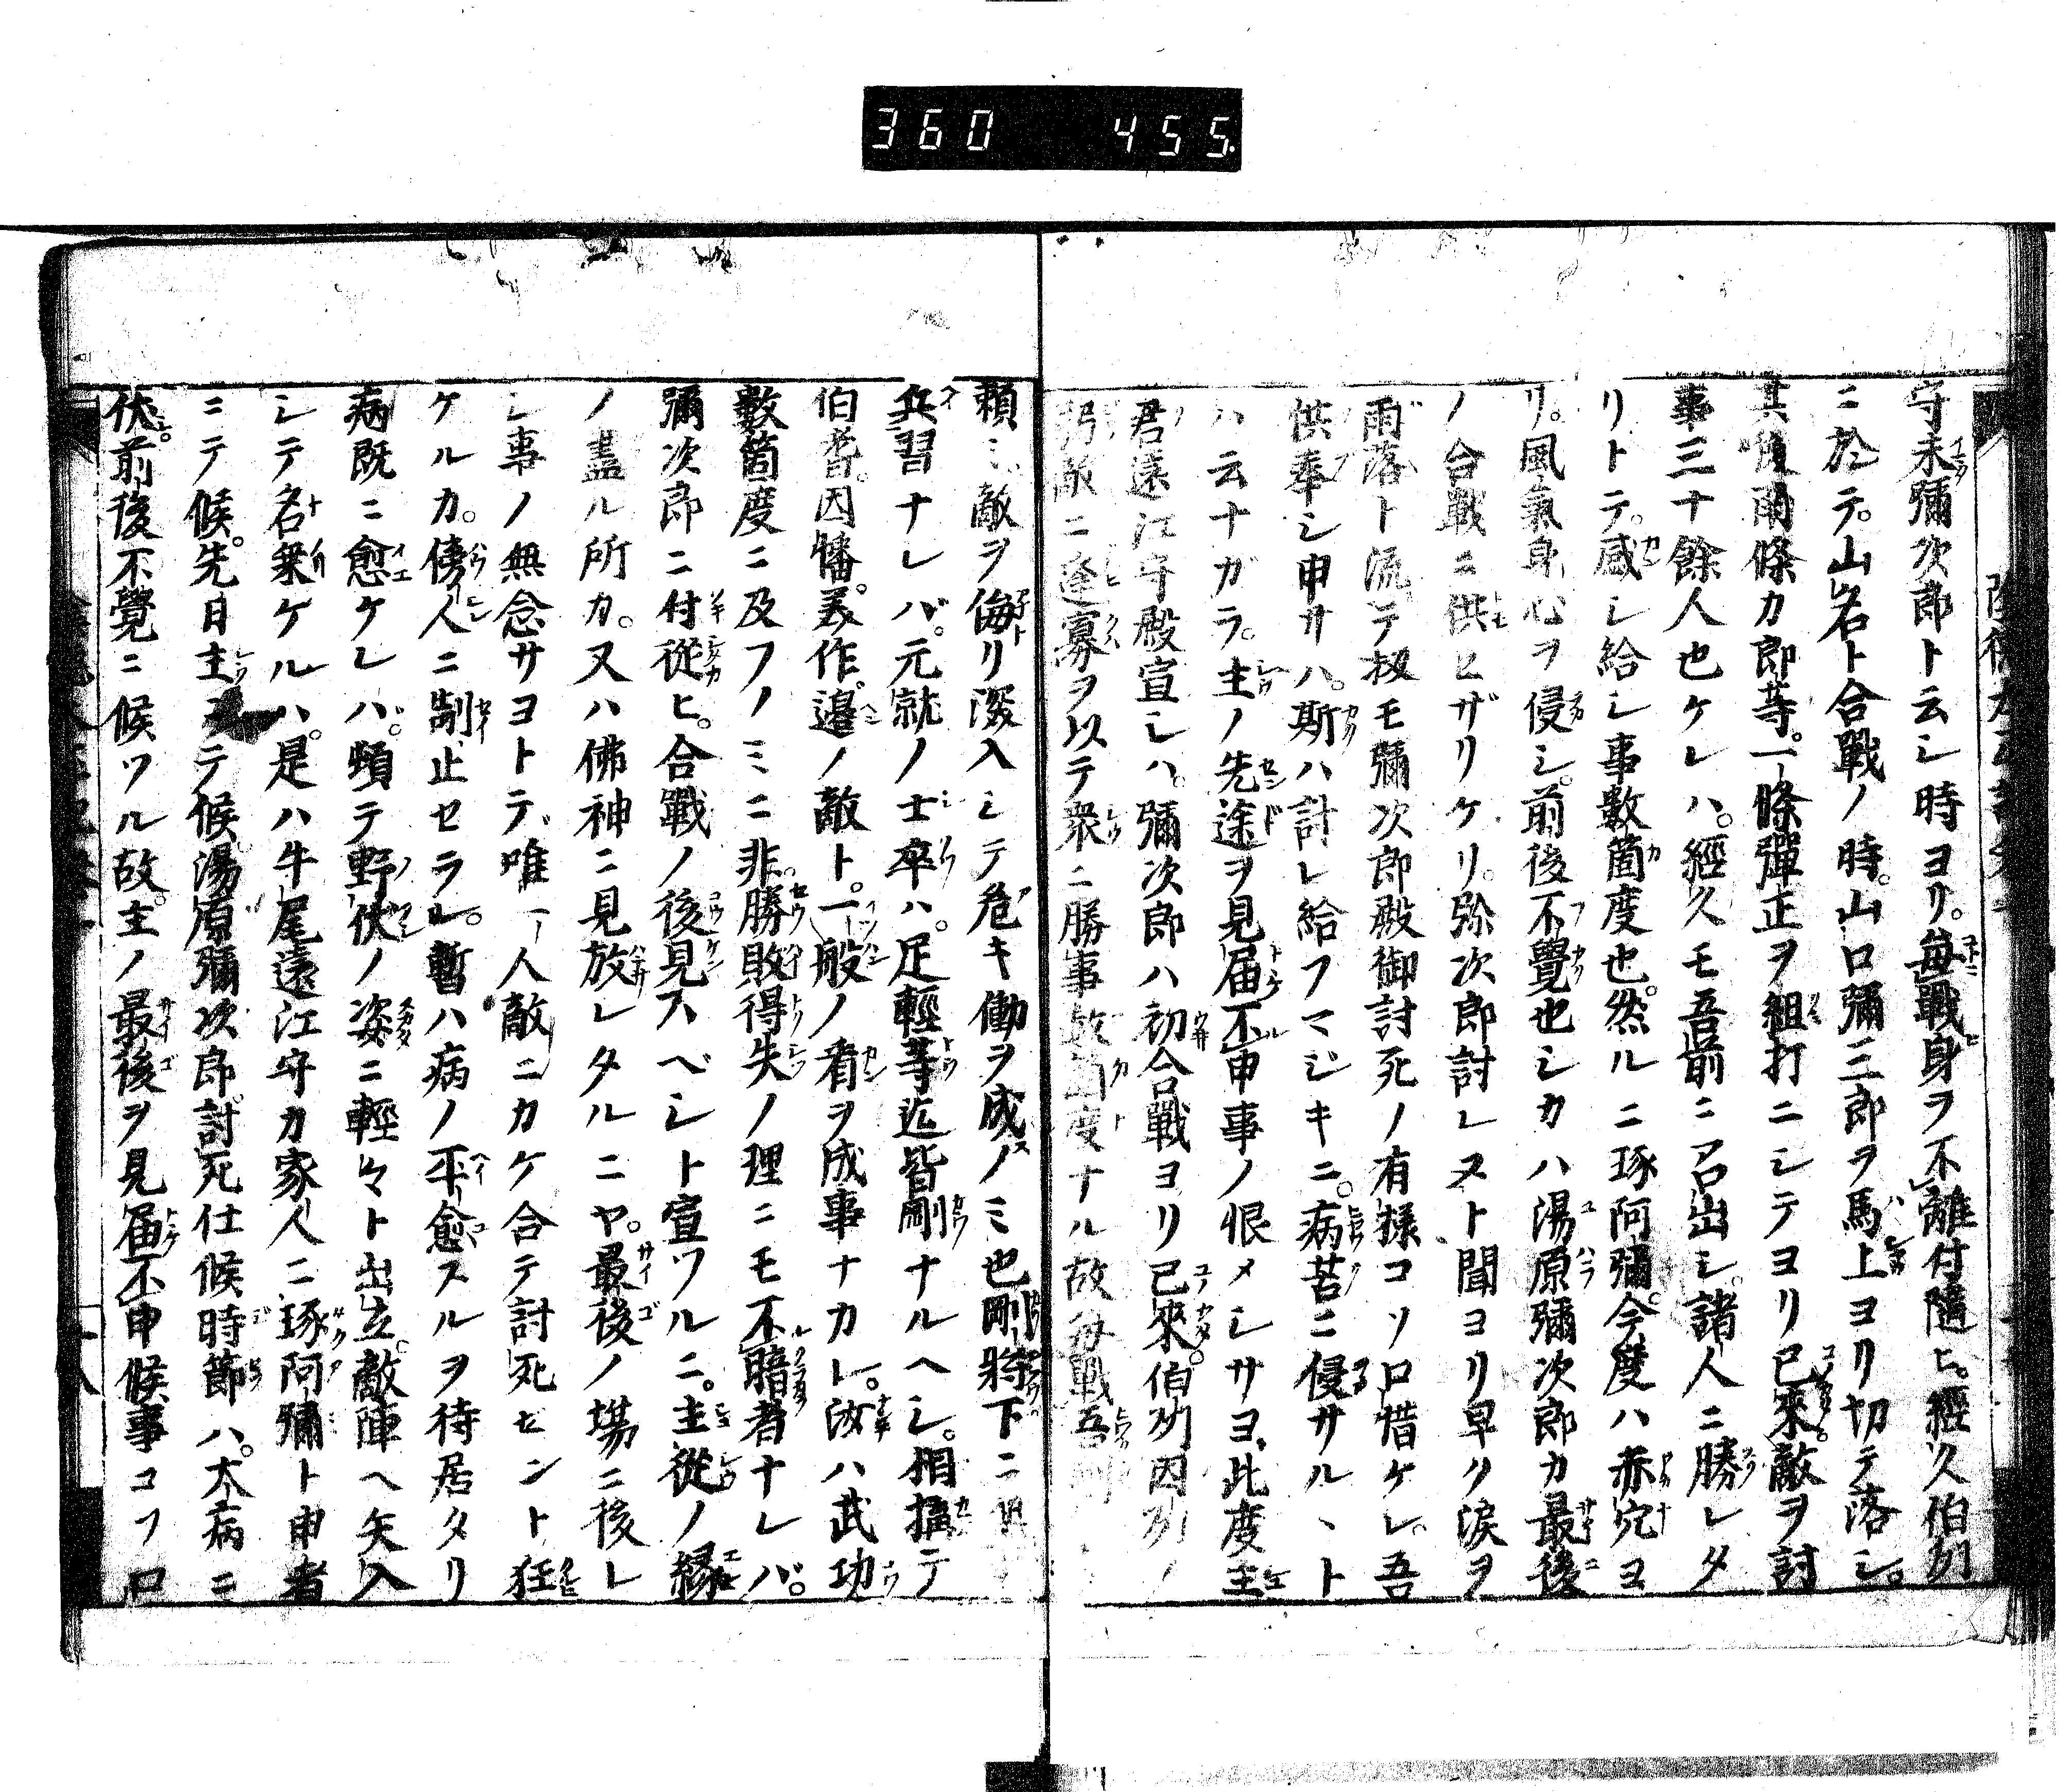 360 455
守未彌次郎ト云シ時ヨリ。毎戰身ヲ不離付隨ヒ。經久伯州
ニ於テ。山名ト合戰ノ時。山口彌三郎ヲ馬上ヨリ切テ落シ。
其後南條カ郎等。一條彈正ヲ組打ニシテヨリ已來。敵ヲ討
事三十餘人也ケレハ。經久モ吾前ニ召出シ。諸人ニ勝レタ
リトテ。感シ給シ事數箇度也。然ルニ琢阿彌。今度ハ赤穴ヨ
リ。風氣身心ヲ侵シ。前後不覺也シカハ湯原彌次郎カ最後
ノ合戰ニ供ヒザリケリ。弥次郎討レヌト聞ヨリ早ク淚ヲ
雨落ト流テ扨モ彌次郎殿御討死ノ有樣コソ口惜ケレ。吾
供奉シ申サハ。斯ハ討レ給フマジキニ。病苦ニ侵サルヽト
ハ云ナガラ。主ノ先途ヲ見届不申事ノ恨メシサヨ、此度主
君遠江守殿宣シハ。彌次郎ハ初合戰ヨリ已來。伯州因州ノ
敵ニ逢寡ヲ以テ衆ニ勝事數箇度ナル故毎戰吾
賴ミ敵ヲ侮リ深入シテ危キ働ヲ成ノミ也剛將下ニ
兵習ナレバ。元就ノ士卒ハ。足輕等迄皆剛ナルヘシ。相搆テ
伯耆。因幡。美作。邊ノ敵ト。一般ノ看ヲ成事ナカレ。汝ハ武功
數箇度ニ及フノミニ非。勝敗得失ノ理ニモ不暗者ナレバ。
彌次郎ニ付從ヒ。合戰ノ後見スベシト宣ツルニ。主從ノ縁
ノ盡ル所カ。又ハ佛神ニ見放レタルニヤ。最後ノ塲ニ後レ
シ事ノ無念サヨトテ、唯一人敵ニカケ合テ討死セント狂
ケルカ。傍人ニ制止セラレ。暫ハ病ノ平愈スルヲ待居タリ
病既ニ愈ケレハ。頓テ野伏ノ姿ニ輕々ト出立。敵陣ヘ矢入
シテ名乘ケルハ。是ハ牛尾遠江守カ家人ニ琢阿彌ト申者
ニテ候。先日主ニテ候湯原彌次郎討死仕候時節ハ。大病ニ
伏。前後不覺ニ候ツル故。主ノ最後ヲ見届不申候事コソ口